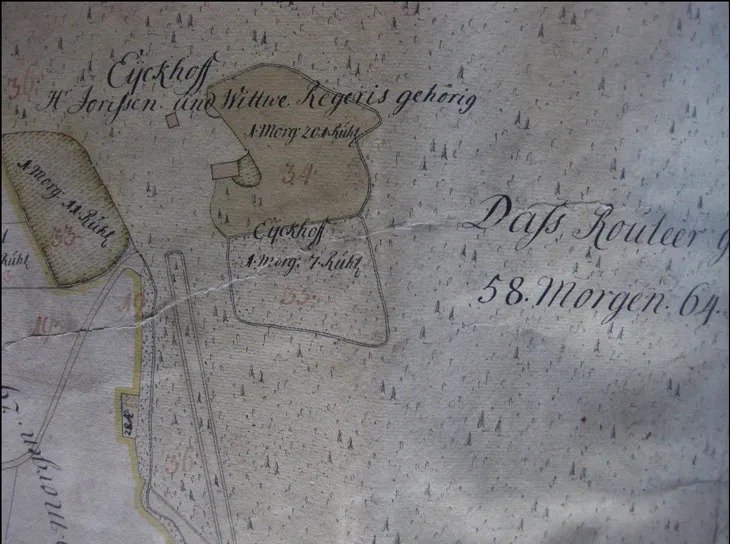 36.
Eÿckhoff
H. Jorißsen und Wittwe Regeris gehörig
1. Morg: 201. Rüht
34.
1. Morg: 11. Rüht
33.
Eÿckhoff
1. Morg: 7. Rüht
35.
Daſs Rouleer g
58. Morgen. 64.
36.
Morgen. 29